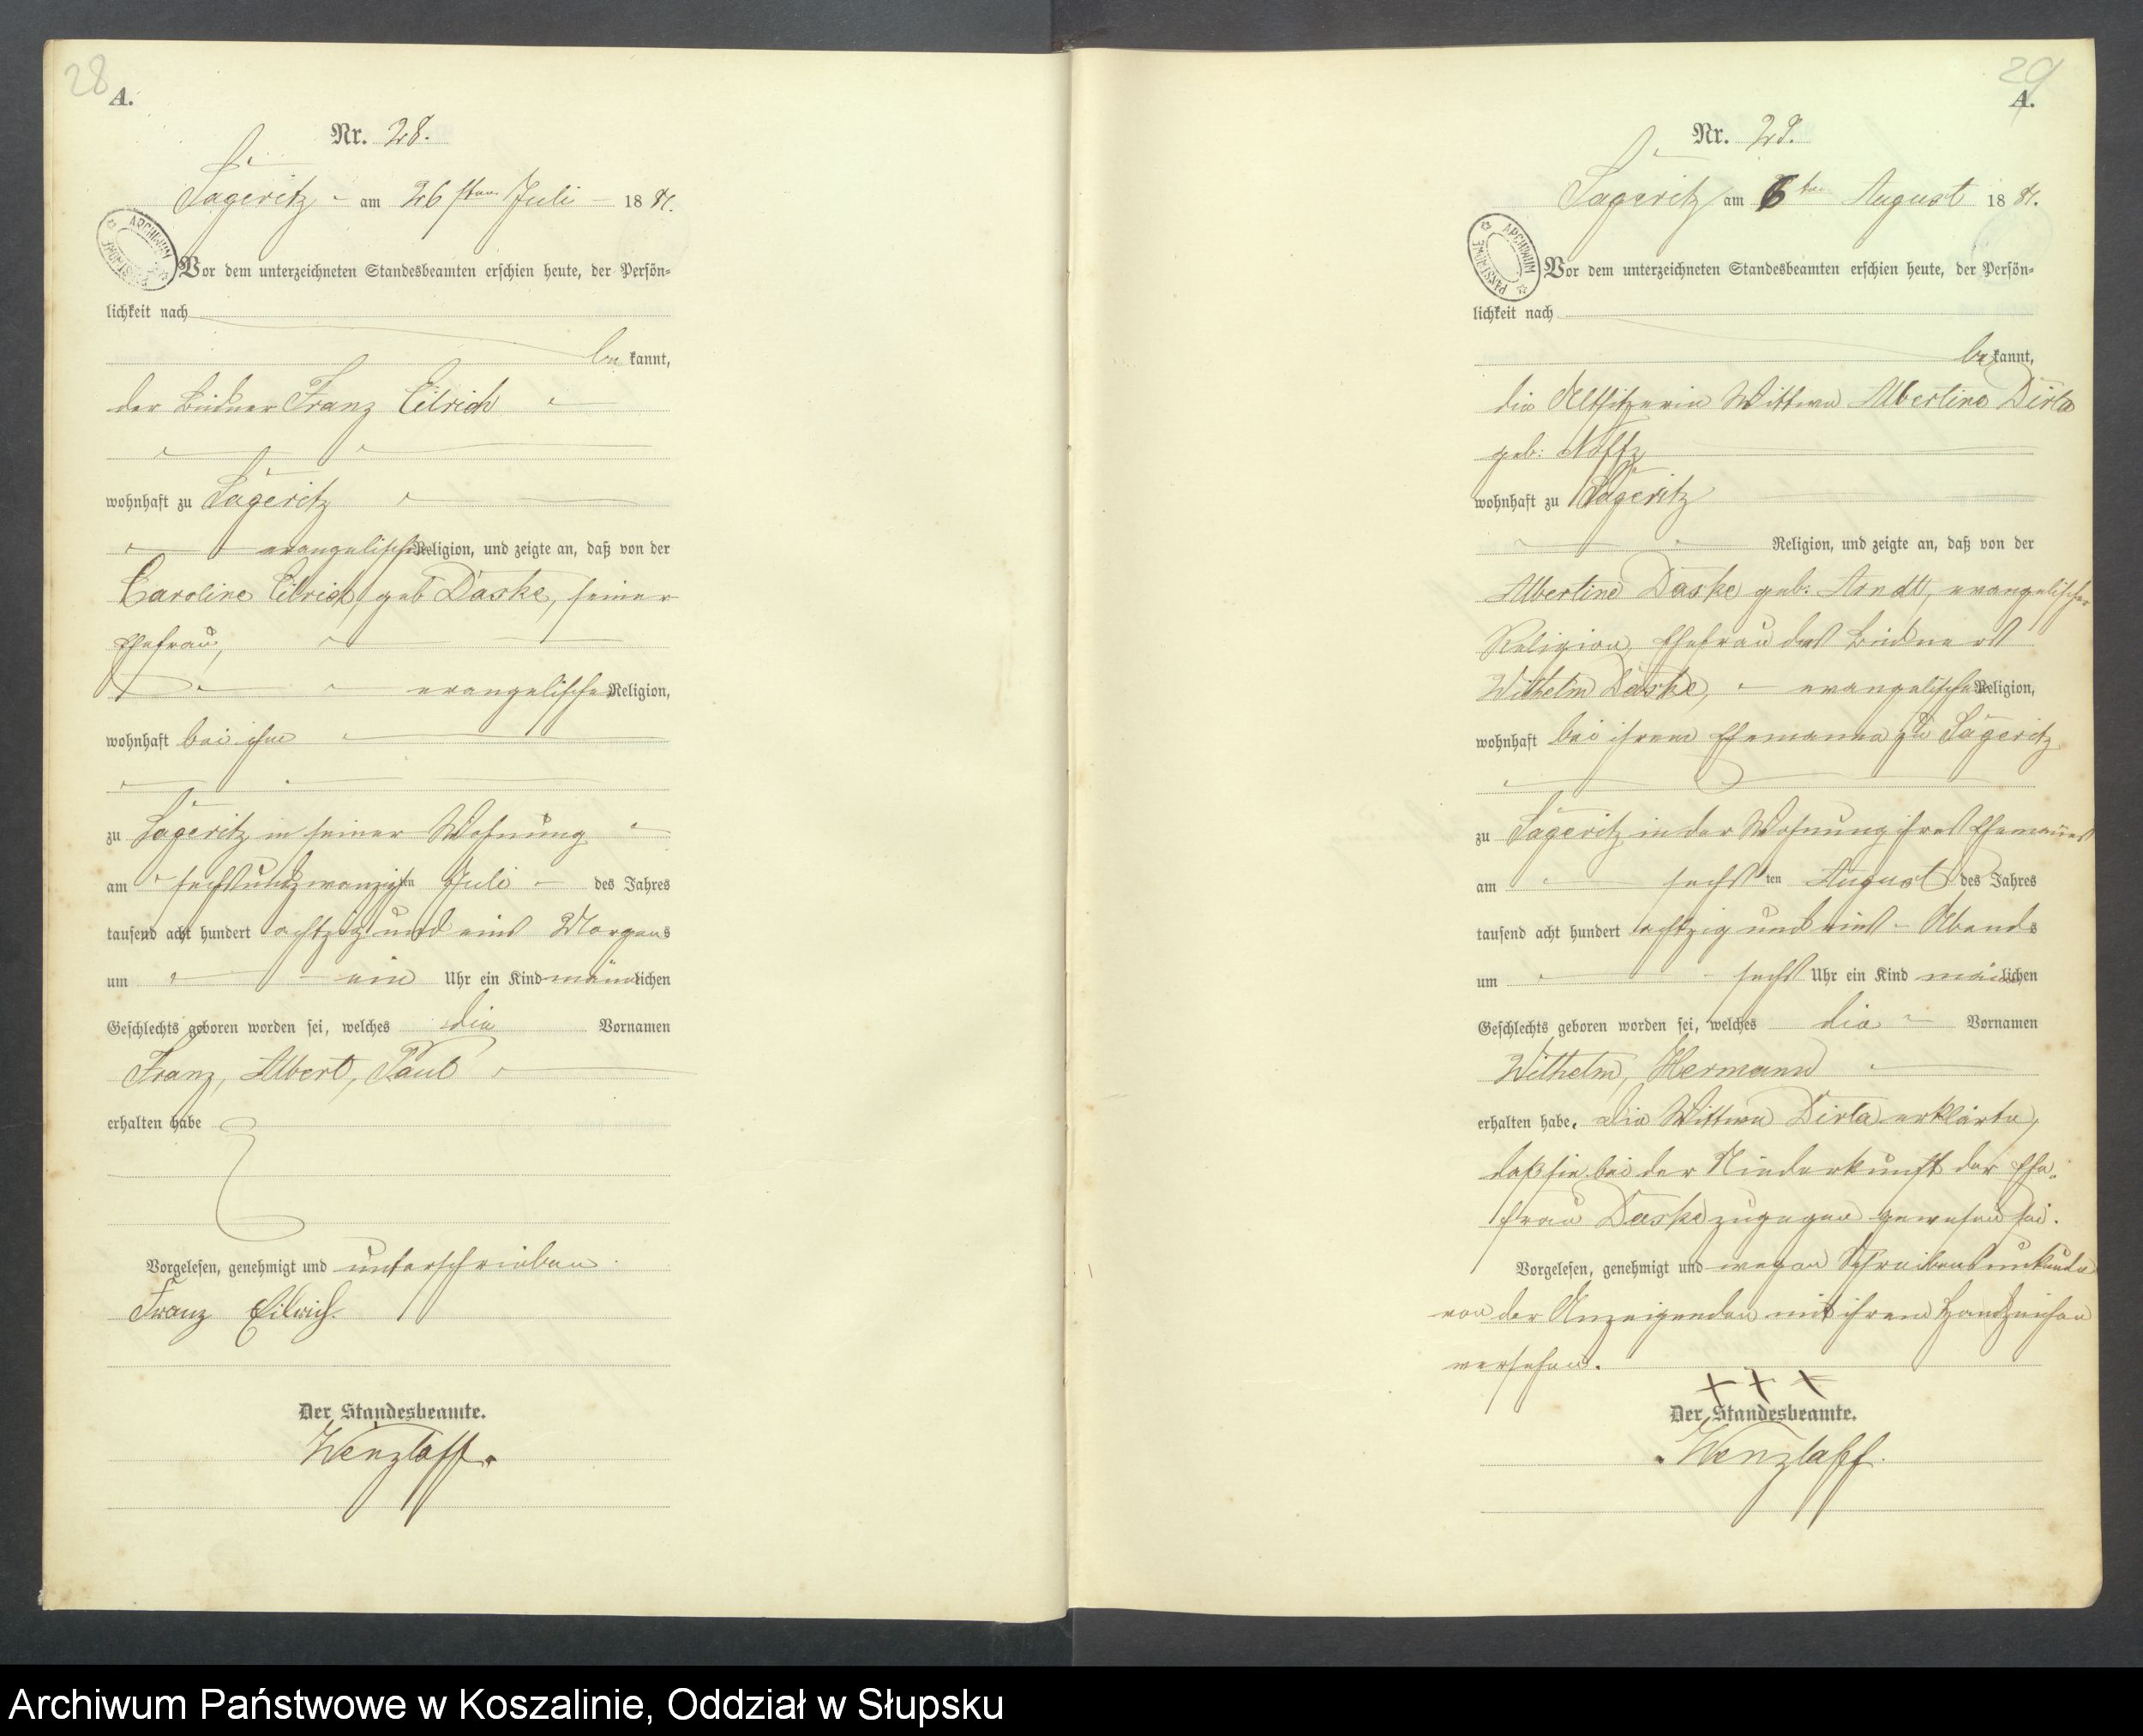 28
A.
Nr. 28.
Lägeritz am 26sten Juli 1881.
ARCHIWUM
Vor dem unterzeichneten Standesbeamten erschien heute, der Persön-
lichkeit nach
be kannt,
der Büdner Franz Eilrich
wohnhaft zu Lägeritz
evangelischer Religion, und zeigte an, daß von der
Caroline Eilrich geb Daske, seiner
Ehefrau,
evangelischer Religion,
wohnhaft bei ihm
zu Lägeritz in seiner Wohnung
am sechsundzwanzigsten Juli des Jahres
tausend acht hundert achtzig und eins Morgens
um ein Uhr ein Kind männlichen
Geschlechts geboren worden sei, welches die Vornamen
Franz, Albert, Paul
erhalten habe
Vorgelesen, genehmigt und unterschrieben.
Franz Eilrich.
Der Standesbeamte.
Wenzlaff.
29
A.
Nr. 29.
Lägeritz am 6ten August 1881.
ARCHIWUM PAŃSTWOWE
Vor dem unterzeichneten Standesbeamten erschien heute, der Persön-
lichkeit nach
be kannt,
die Altsitzerin Wittwe Albertine Dirla
geb:
wohnhaft zu Lägeritz
Religion, und zeigte an, daß von der
Albertine Daske geb: Arndt, evangelischer
Religion, Ehefrau des Büdners
Wilhelm Daske, evangelischer Religion,
wohnhaft bei ihrem Ehemanne zu Lägeritz
zu Lägeritz in der Wohnung ihres Ehemannes
am sechsten August des Jahres
tausend acht hundert achtzig und eins Abends
um sechs Uhr ein Kind männlichen
Geschlechts geboren worden sei, welches die Vornamen
Wilhelm, Hermann
erhalten habe. Die Wittwe Dirla erklärte,
daß sie bei der Niederkunft der Ehe-
frau Daske zugegen gewesen sei.
Vorgelesen, genehmigt und wegen Schreibensunkunde
von der Anzeigenden mit ihrem Handzeichen
versehen.
+ + +
Der Standesbeamte.
Wenzlaff.
Archiwum Państwowe w Koszalinie, Oddział w Słupsku